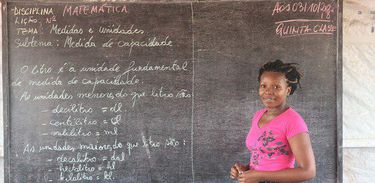 DISCIPLINA MATEMÁTICA
LIÇÃO Nº
TEMA: Medidas e unidades
Subtema: Medida de capacidade
O litro é a unidade fundamental
de medida de capacidade
As unidades menores do que litro são:
- decilitro = dl
- centilitro = cl
- mililitro = ml
As unidades maiores do que litro são:
- decalitro = dal
- hectolitro = hl
- kilolitro = kl
Aos 03/10/
QUINTA CLASSE